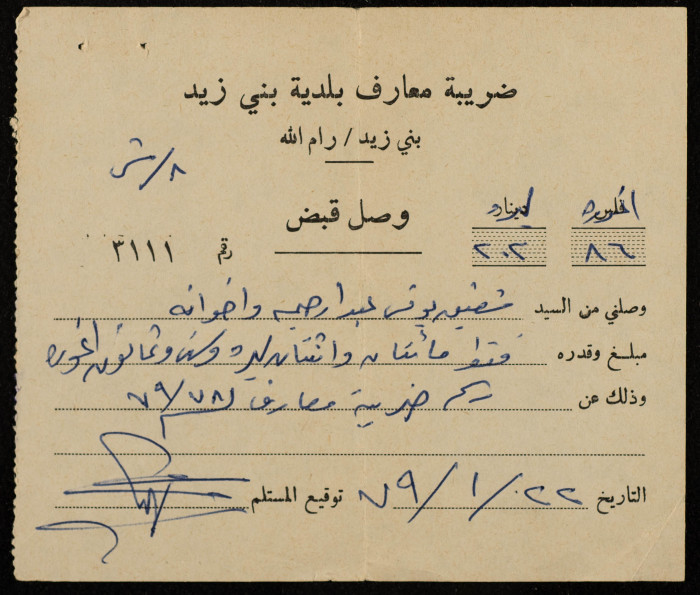 ضريبة معارف بلدية بني زيد
بني زيد / رام الله
٨/ش
وصل قبض
اغورة ليرة
٨٦ ٢٠٢
رقم ٣١١١
وصلني من السيد شفيق يونس عبد الرحيم واخوانه
مبلغ وقدره فقط مائتان واثنتان ليرة وست وثمانون اغورة
وذلك عن رسم ضريبة معارف ٧٩/٧٨
التاريخ ٢٢/١/٧٩ توقيع المستلم